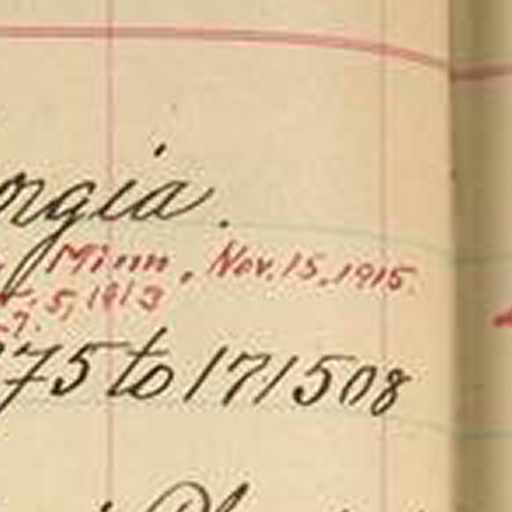 orgia.
Minn, Nov. 15, 1915.
5, 1913
7.
75 to 171508